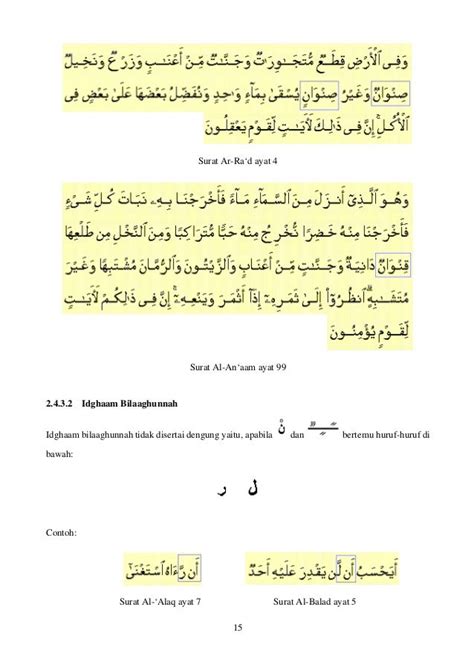 وَفِى ٱلْأَرْضِ قِطَعٌ مُّتَجَـٰوِرَٰتٌ وَجَنَّـٰتٌ مِّنْ أَعْنَـٰبٍ وَزَرْعٌ وَنَخِيلٌ
صِنْوَانٌ وَغَيْرُ صِنْوَانٍ يُسْقَىٰ بِمَآءٍ وَٰحِدٍ وَنُفَضِّلُ بَعْضَهَا عَلَىٰ بَعْضٍ فِى
ٱلْأُكُلِ ۚ إِنَّ فِى ذَٰلِكَ لَـَٔايَـٰتٍ لِّقَوْمٍ يَعْقِلُونَ
Surat Ar-Ra'd ayat 4
وَهُوَ ٱلَّذِىٓ أَنزَلَ مِنَ ٱلسَّمَآءِ مَآءً فَأَخْرَجْنَا بِهِۦ نَبَاتَ كُلِّ شَىْءٍ
فَأَخْرَجْنَا مِنْهُ خَضِرًا نُّخْرِجُ مِنْهُ حَبًّا مُّتَرَاكِبًا وَمِنَ ٱلنَّخْلِ مِن طَلْعِهَا
قِنْوَانٌ دَانِيَةٌ وَجَنَّـٰتٍ مِّنْ أَعْنَابٍ وَٱلزَّيْتُونَ وَٱلرُّمَّانَ مُشْتَبِهًا وَغَيْرَ
مُتَشَـٰبِهٍ ۗ ٱنظُرُوٓا۟ إِلَىٰ ثَمَرِهِۦٓ إِذَآ أَثْمَرَ وَيَنْعِهِۦٓ ۚ إِنَّ فِى ذَٰلِكُمْ لَـَٔايَـٰتٍ
لِّقَوْمٍ يُؤْمِنُونَ
Surat Al-An'aam ayat 99
2.4.3.2 Idghaam Bilaaghunnah
Idghaam bilaaghunnah tidak disertai dengung yaitu, apabila نْ dan ـًـٍـٌ bertemu huruf-huruf di
bawah:
ل ر
Contoh:
أَن رَّءَاهُ ٱسْتَغْنَىٰٓ أَيَحْسَبُ أَن لَّن يَقْدِرَ عَلَيْهِ أَحَدٌ
Surat Al-'Alaq ayat 7 Surat Al-Balad ayat 5
15